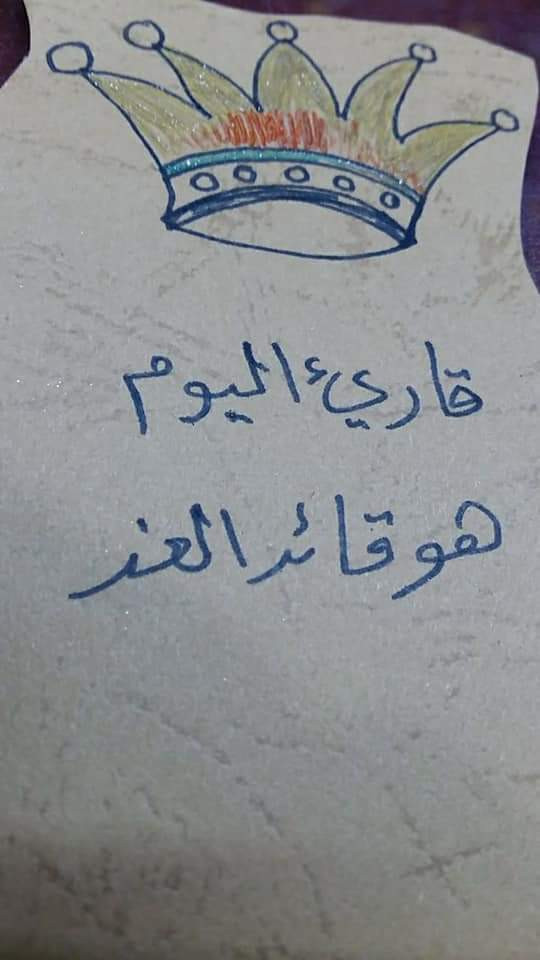 قاريء اليوم
هو قائد الغد